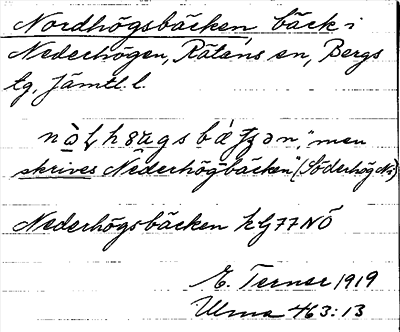 Nordhögsbäcken, bäck i
Nederhögen, Rätans sn, Bergs
tg, Jämtl. l.
"men
skrives Nederhögbäcken" (Söderhög No)
Nederhögsbäcken kG77NÖ
E. Terner 1919
Ulma 463:13